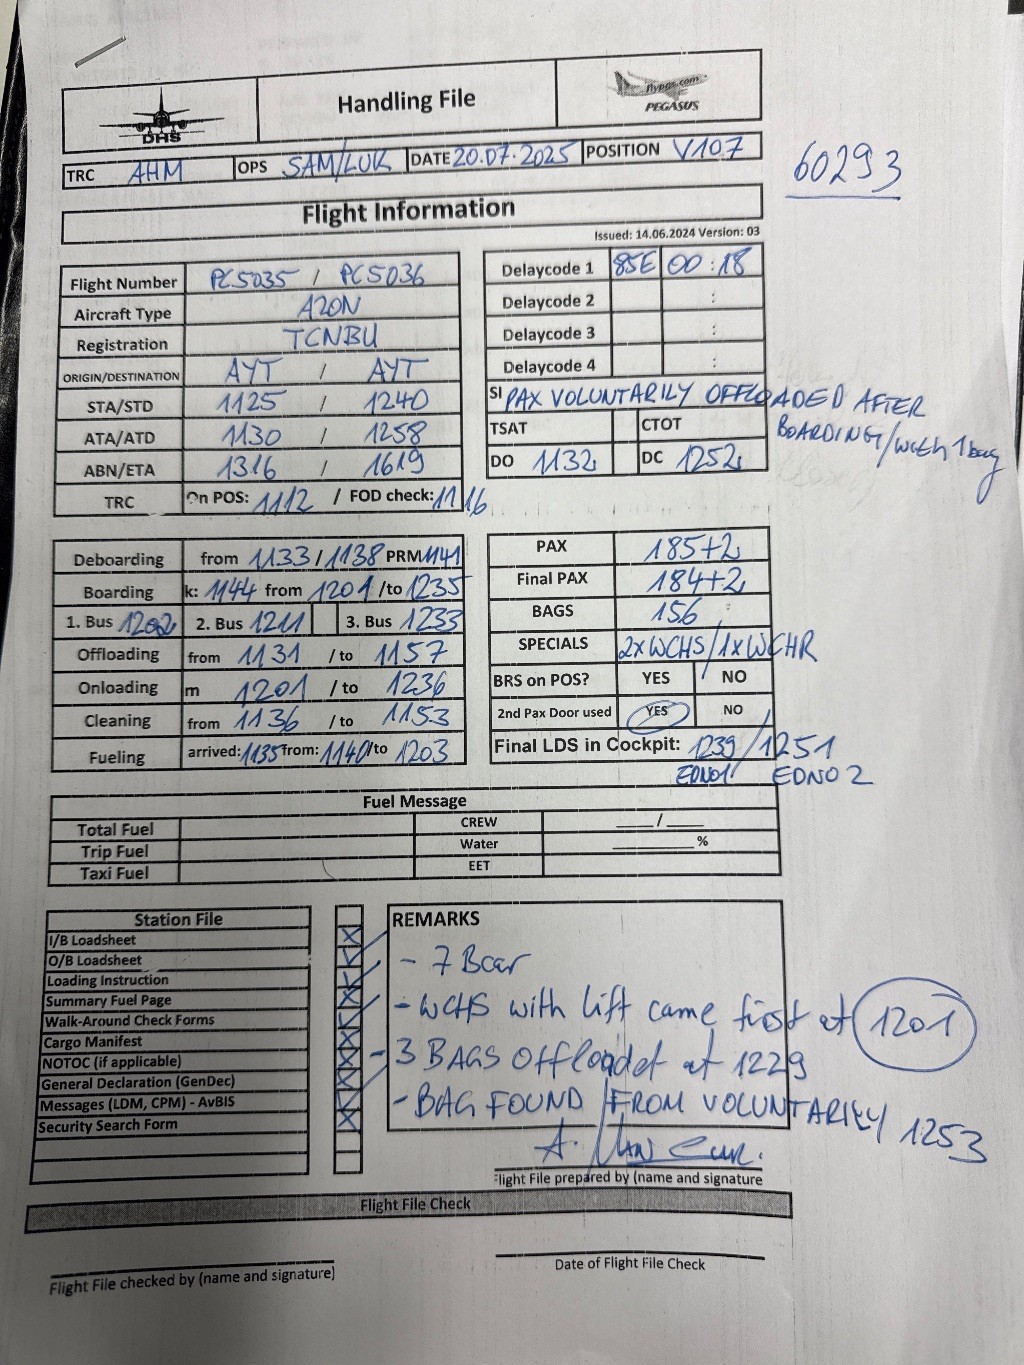 DHS
Handling File
flypgs.com
PEGASUS
TRC AHM OPS SAM/LUK DATE 20.07.2025 POSITION V107
60293
Flight Information
Issued: 14.06.2024 Version: 03
Flight Number PC5035 / PC5036
Aircraft Type A20N
Registration TCNBU
ORIGIN/DESTINATION AYT / AYT
STA/STD 1125 / 1240
ATA/ATD 1130 / 1258
ABN/ETA 1316 / 1619
TRC On POS: 1112 / FOD check: 1116
Delaycode 1 85E 00:18
Delaycode 2 :
Delaycode 3 :
Delaycode 4 :
SI PAX VOLUNTARILY OFFLOADED AFTER
BOARDING/with 1 bag
TSAT CTOT
DO 1132 DC 1252
Deboarding from 1133/1138 PRM 1141
Boarding k: 1144 from 1201 /to 1235
1. Bus 1202 2. Bus 1211 3. Bus 1233
Offloading from 1131 /to 1157
Onloading m 1201 /to 1236
Cleaning from 1136 /to 1153
Fueling arrived: 1135 from: 1140 /to 1203
PAX 185+2
Final PAX 184+2
BAGS 156
SPECIALS 2xWCHS/1xWCHR
BRS on POS? YES NO
2nd Pax Door used YES NO
Final LDS in Cockpit: 1239/1251
EDNO1 EDNO 2
Fuel Message
Total Fuel CREW ____/____
Trip Fuel Water ________%
Taxi Fuel EET
Station File
I/B Loadsheet
O/B Loadsheet
Loading Instruction
Summary Fuel Page
Walk-Around Check Forms
Cargo Manifest
NOTOC (if applicable)
General Declaration (GenDec)
Messages (LDM, CPM) - AvBIS
Security Search Form
REMARKS
- 7 Bcar
- WCHS with lift came first at 1201
- 3 BAGS Offloadet at 1229
- BAG FOUND FROM VOLUNTARILY 1253
Flight File prepared by (name and signature
Flight File Check
Flight File checked by (name and signature)
Date of Flight File Check